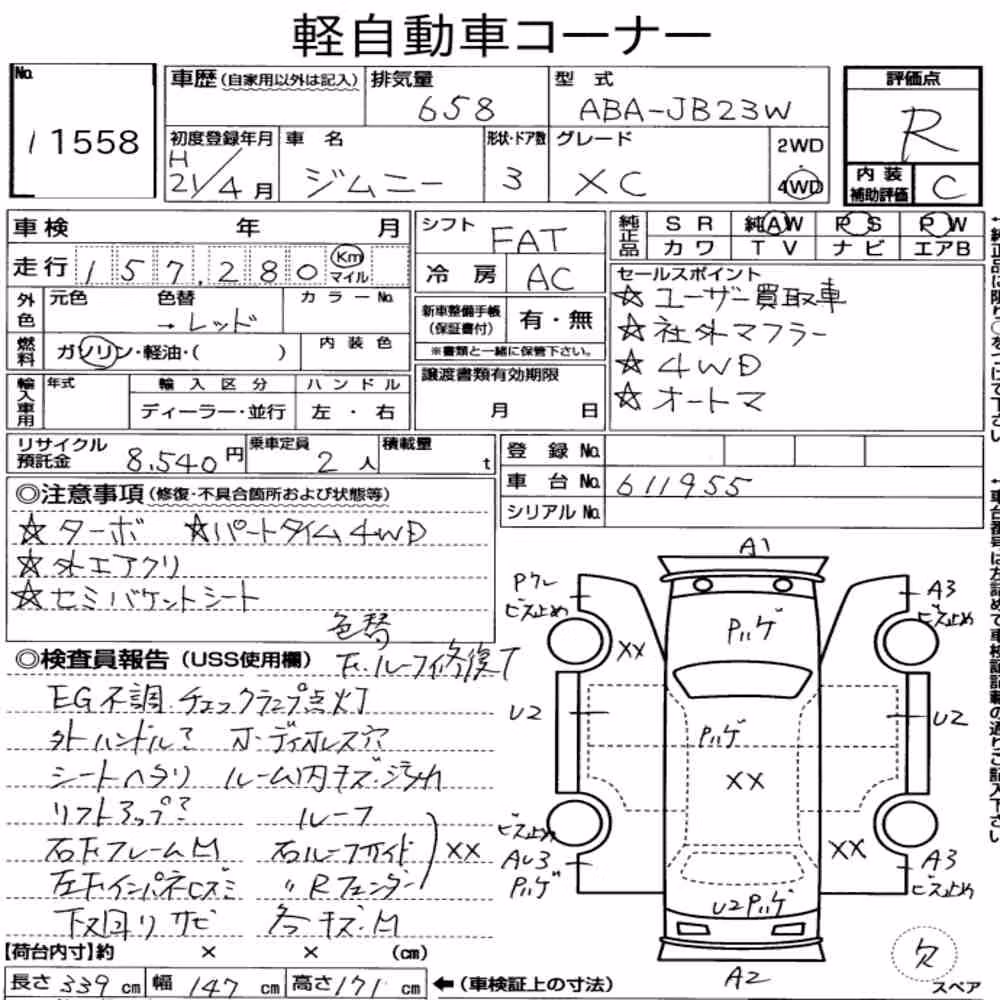 軽自動車コーナー
No.
11558
車歴(自家用以外は記入)
排気量
658
型 式
ABA-JB23W
評価点
R
初度登録年月
H
21/4月
車 名
ジムニー
形状・ドア数
3
グレード
XC
2WD
4WD
内装
補助評価
C
車検 年 月
シフト
FAT
純正品
SR 純AW PS PW
カワ TV ナビ エアB
走行 157,280 Km
マイル
冷房 AC
セールスポイント
☆ユーザー買取車
☆社外マフラー
☆4WD
☆オートマ
外色
元色 色替 カラーNo.
→レッド
新車整備手帳
(保証書付)
有・無
※書類と一緒に保管下さい。
燃料
ガソリン・軽油・( )
内装色
輸入車用
年式
輸入区分
ハンドル
ディーラー・並行
左・右
譲渡書類有効期限
月 日
リサイクル
預託金
8,540円
乗車定員
2人
積載量
t
登録No.
車台No. 611955
シリアルNo.
◎注意事項(修復・不具合箇所および状態等)
☆ターボ ☆パートタイム4WD
☆外エアクリ
☆セミバケットシート
色替
◎検査員報告(USS使用欄)
下、ルーフ修復了
EG不調.チェックランプ点灯
外ハンドル? オーディオレス穴
シートヘタリ ルーム内キズ・汚れ
リフトアップ? ルーフ
右下フレームM 右ルーフサイド XX
左下インパネCズミ 〃Rフェンダー
下又回りサビ 各キズ.M
【荷台内寸】約 × × (cm)
長さ339cm 幅147cm 高さ171cm
←(車検証上の寸法)
A1
Pクレ
ビス止め
A3
ビス止め
XX
Pハゲ
U2
U2
Pハゲ
XX
ビス止め
AU3
Pハゲ
XX
A3
ビス止め
U2Pハゲ
A2
欠
スペア